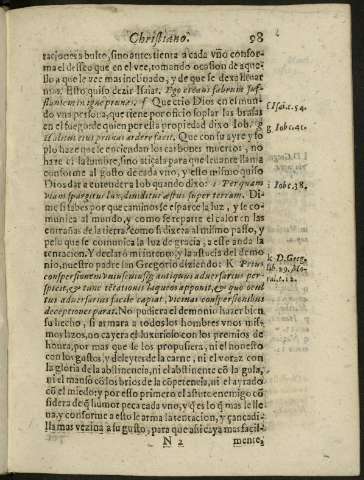 Christiano. 98
taciones a bulto, sino antes tienta a cada vño confor-
ma el desseo que en el vee, tomando ocasion de aque-
llo a que le vee mas inclinado, y de que se dexa lleuar
mas. Esto quiso dezir Isaias. Ego creaui fabrum suf-
flantem in igne prunas. f Que crio Dios en el mun-
do vna persona, que tiene por oficio soplar las brasas
en el fuego: de quien por ella propiedad dixo Iob. g
Halitus eius prunas ardere facit. Que con su ayre y so
plo haze que se enciendan los carbones muertos, no
haze el la lumbre, sino atiçala para que leuante llama
conforme al gusto de cada vno, y esto mismo quiso
Dios dar a entender a Iob quando dixo: i Per quam
viam spargitur lux, diuiditur æstus super terram. Di-
me si sabes por que caminos se esparce la luz, y se co-
munica al mundo, y como se reparte el calor en las
entrañas de la tierra? como si dixera al mismo passo, y
pelo que se comunica la luz de gracia, a esse anda la
tentacion. Y declaró mi intento, y la astucia del demo
nio, nuestro padre san Gregorio diziendo: K Prius
conspersionem vniuscuiusq; antiquus aduersarius per-
spicit, & tunc tētationis laqueos apponit, & quò occul
tus aduersarius facile capiat, vicinas conspersionibus
deceptiones parat. No pudiera el demonio hazer bien
su hecho, si armara a todos los hombres vnos mis-
mos lazos, no cayera el luxurioso con los premios de
honra, por mas que se los propusiera, ni el honesto
con los gustos, y deleytes de la carne, ni el voraz con
la gloria de la abstinencia, ni el abstinente cō la gula,
ni el manso cō los brios de la cōpetencia, ni el ayrado
cō el miedo: y por esso primero el astuto enemigo cō
sidera de q̄ humor peca cada vno, y q̄ es lo q̄ mas le lle
na, y conforme a esto le arma la tentacion, y çancadi-
lla mas vezina a su gusto, para que assi caya mas facil-
N 2 mente,
f Isai. c. 54.
g Iob c. 41.
i Iob c. 38.
k D. Greg.
lib. 29. Mo-
ral. c. 12.